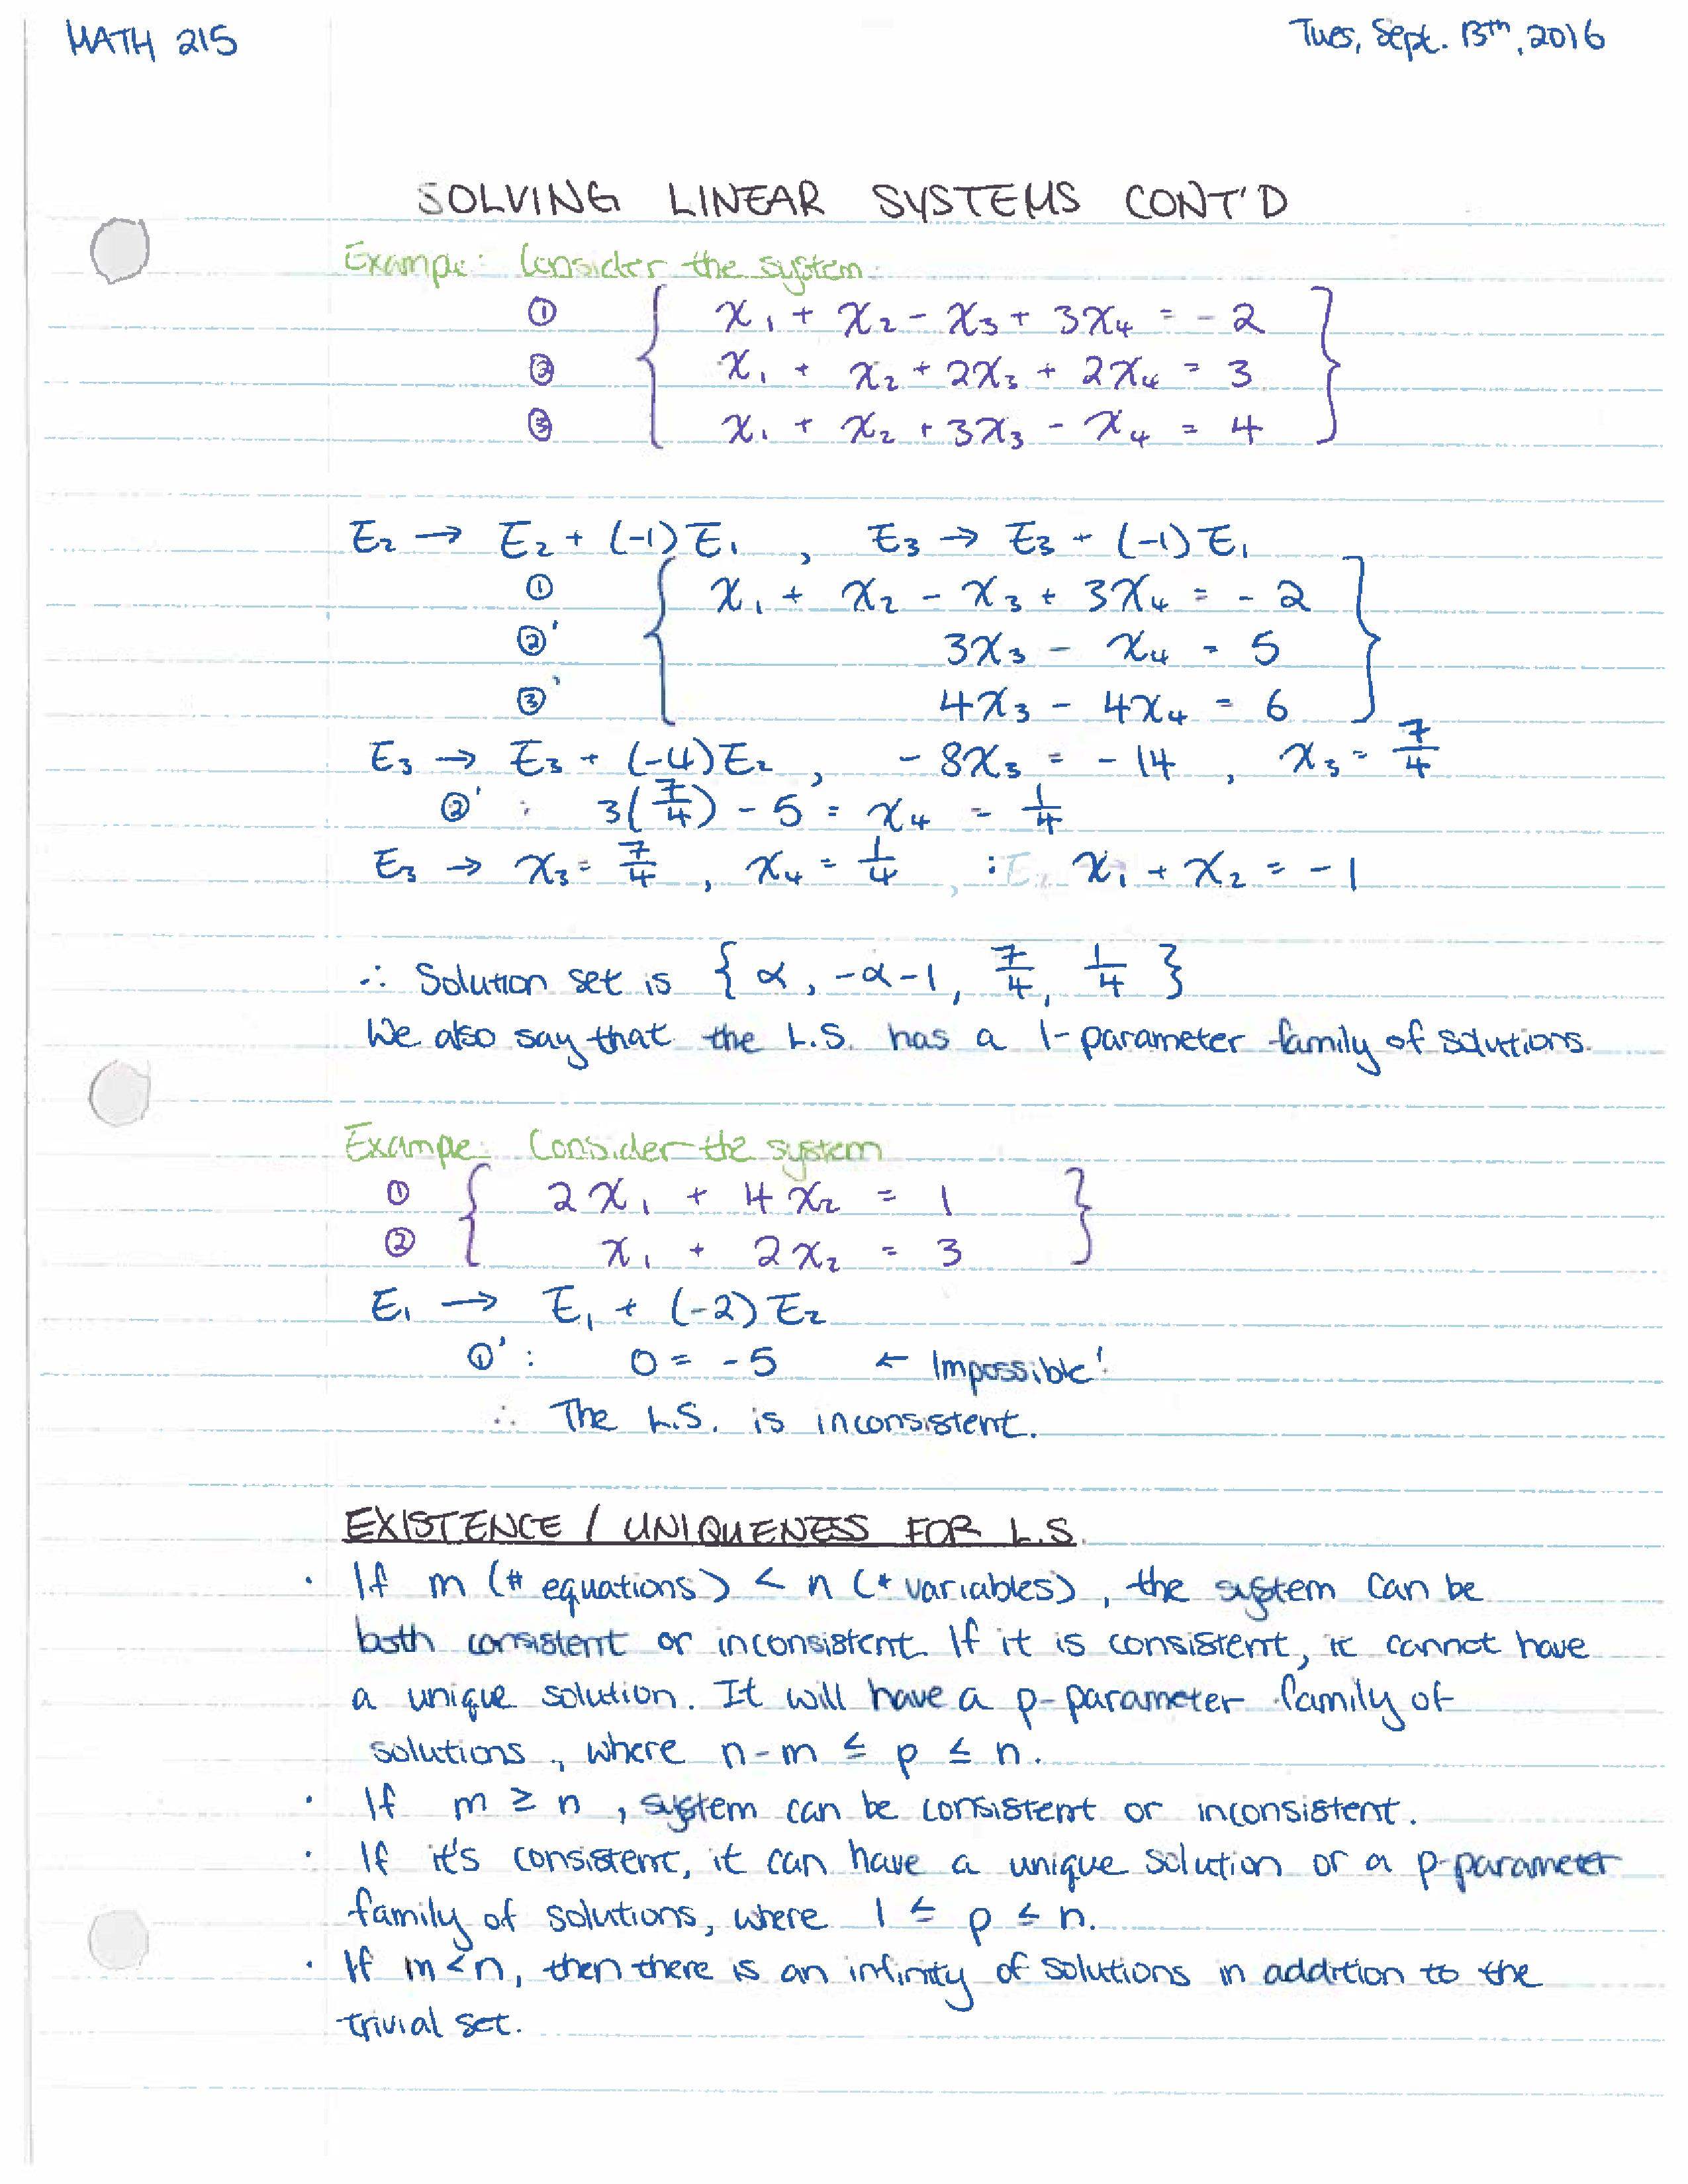 MATH 215
Tues, Sept. 13th, 2016
SOLVING LINEAR SYSTEMS CONT'D
Example: Consider the system:
① { x₁ + x₂ - x₃ + 3x₄ = -2 }
② x₁ + x₂ + 2x₃ + 2x₄ = 3
③ x₁ + x₂ + 3x₃ - x₄ = 4
E₂ → E₂ + (-1)E₁ , E₃ → E₃ + (-1)E₁
① { x₁ + x₂ - x₃ + 3x₄ = -2 }
②' 3x₃ - x₄ = 5
③' 4x₃ - 4x₄ = 6
E₃ → E₃ + (-4)E₂ , -8x₃ = -14 , x₃ = 7/4
②' : 3(7/4) - 5 = x₄ = 1/4
E₃ → x₃ = 7/4 , x₄ = 1/4 , : x₁ + x₂ = -1
∴ Solution set is { α, -α-1, 7/4, 1/4 }
We also say that the L.S. has a 1-parameter family of solutions.
Example: Consider the system
① { 2x₁ + 4x₂ = 1 }
② x₁ + 2x₂ = 3
E₁ → E₁ + (-2)E₂
①' : 0 = -5 ← Impossible!
∴ The L.S. is inconsistent.
EXISTENCE / UNIQUENESS FOR L.S.
· If m (# equations) < n (# variables), the system can be
both consistent or inconsistent. If it is consistent, it cannot have
a unique solution. It will have a p-parameter family of
solutions, where n-m ≤ p ≤ n.
· If m ≥ n, system can be consistent or inconsistent.
· If it's consistent, it can have a unique solution or a p-parameter
family of solutions, where 1 ≤ p ≤ n.
· If m<n, then there is an infinity of solutions in addition to the
trivial set.